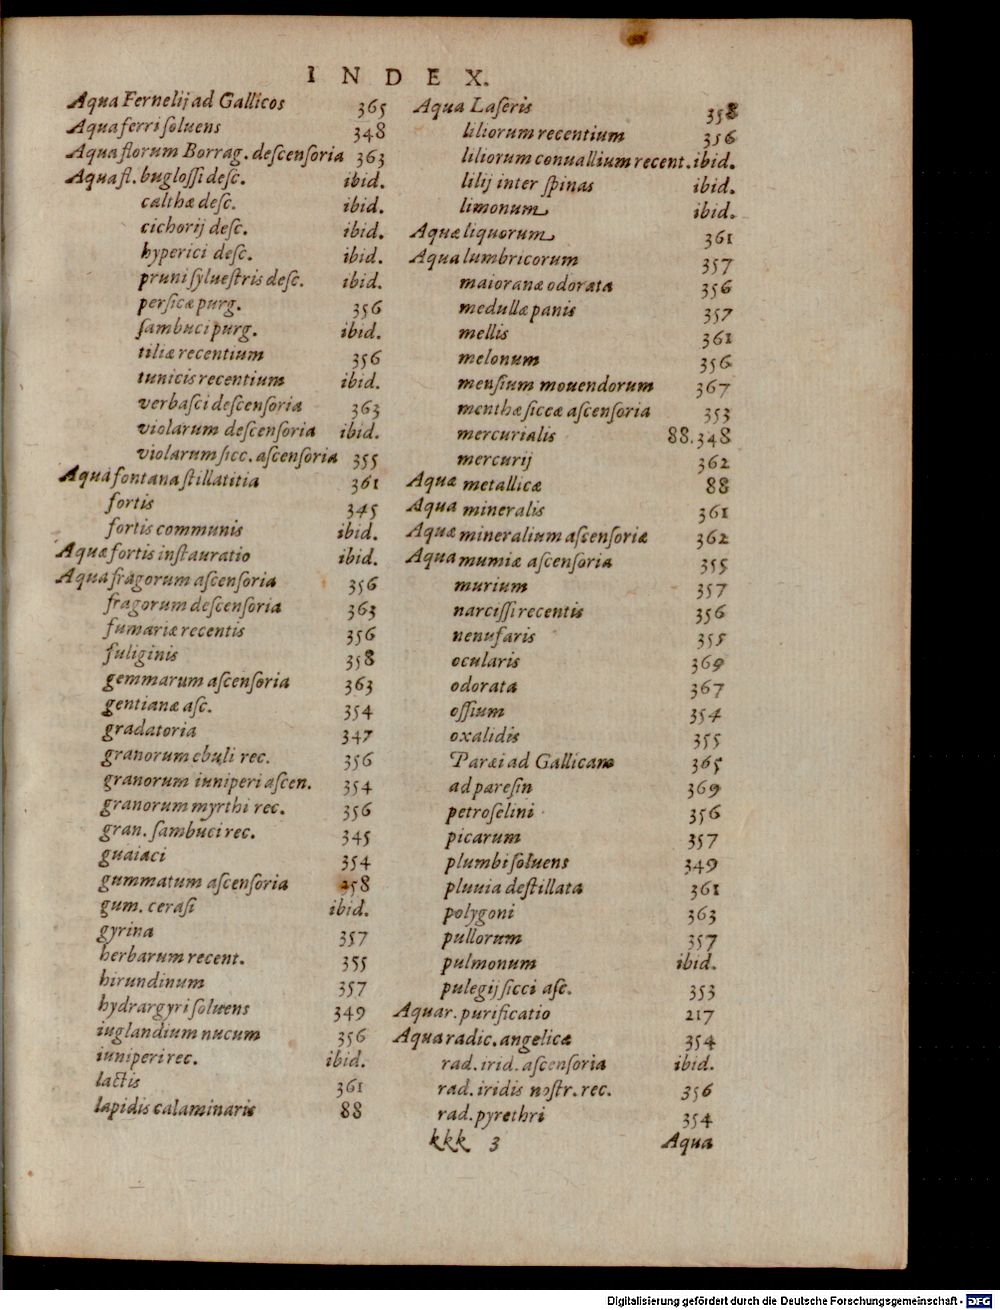 INDEX.
Aqua Fernelij ad Gallicos 365
Aqua ferri ſoluens 348
Aqua florum Borrag. deſcenſoria 363
Aqua fl. bugloſſi deſc. ibid.
calthæ deſc. ibid.
cichorij deſc. ibid.
hyperici deſc. ibid.
pruni ſylueſtris deſc. ibid.
perſicæ purg. 356
ſambuci purg. ibid.
tiliæ recentium 356
tunicis recentium ibid.
verbaſci deſcenſoria 363
violarum deſcenſoria ibid.
violarum ſicc. aſcenſoria 355
Aqua fontana ſtillatitia 361
fortis 345
fortis communis ibid.
Aquæ fortis inſtauratio ibid.
Aqua fragorum aſcenſoria 356
fragorum deſcenſoria 363
fumariæ recentis 356
fuliginis 358
gemmarum aſcenſoria 363
gentianæ aſc. 354
gradatoria 347
granorum ebuli rec. 356
granorum iuniperi aſcen. 354
granorum myrthi rec. 356
gran. ſambuci rec. 345
guaiaci 354
gummatum aſcenſoria 358
gum. ceraſi ibid.
gyrina 357
herbarum recent. 355
hirundinum 357
hydrargyri ſoluens 349
iuglandium nucum 356
iuniperi rec. ibid.
lactis 361
lapidis calaminaris 88
Aqua Laſeris 358
liliorum recentium 356
liliorum conuallium recent. ibid.
lilij inter ſpinas ibid.
limonum ibid.
Aquæ liquorum 361
Aqua lumbricorum 357
maioranæ odorata 356
medullæ panis 357
mellis 361
melonum 356
menſium mouendorum 367
menthæ ſiccæ aſcenſoria 353
mercurialis 88.348
mercurij 362
Aquæ metallicæ 88
Aqua mineralis 361
Aquæ mineralium aſcenſoriæ 362
Aqua mumiæ aſcenſoria 355
murium 357
narciſſi recentis 356
nenufaris 355
ocularis 369
odorata 367
oſſium 354
oxalidis 355
Paræi ad Gallicam 365
ad pareſin 369
petroſelini 356
picarum 357
plumbi ſoluens 349
pluuia deſtillata 361
polygoni 363
pullorum 357
pulmonum ibid.
pulegij ſicci aſc. 353
Aquar. purificatio 217
Aqua radic. angelicæ 354
rad. irid. aſcenſoria ibid.
rad. iridis noſtr. rec. 356
rad. pyrethri 354
kkk 3 Aqua
Digitalisierung gefördert durch die Deutsche Forschungsgemeinschaft - DFG